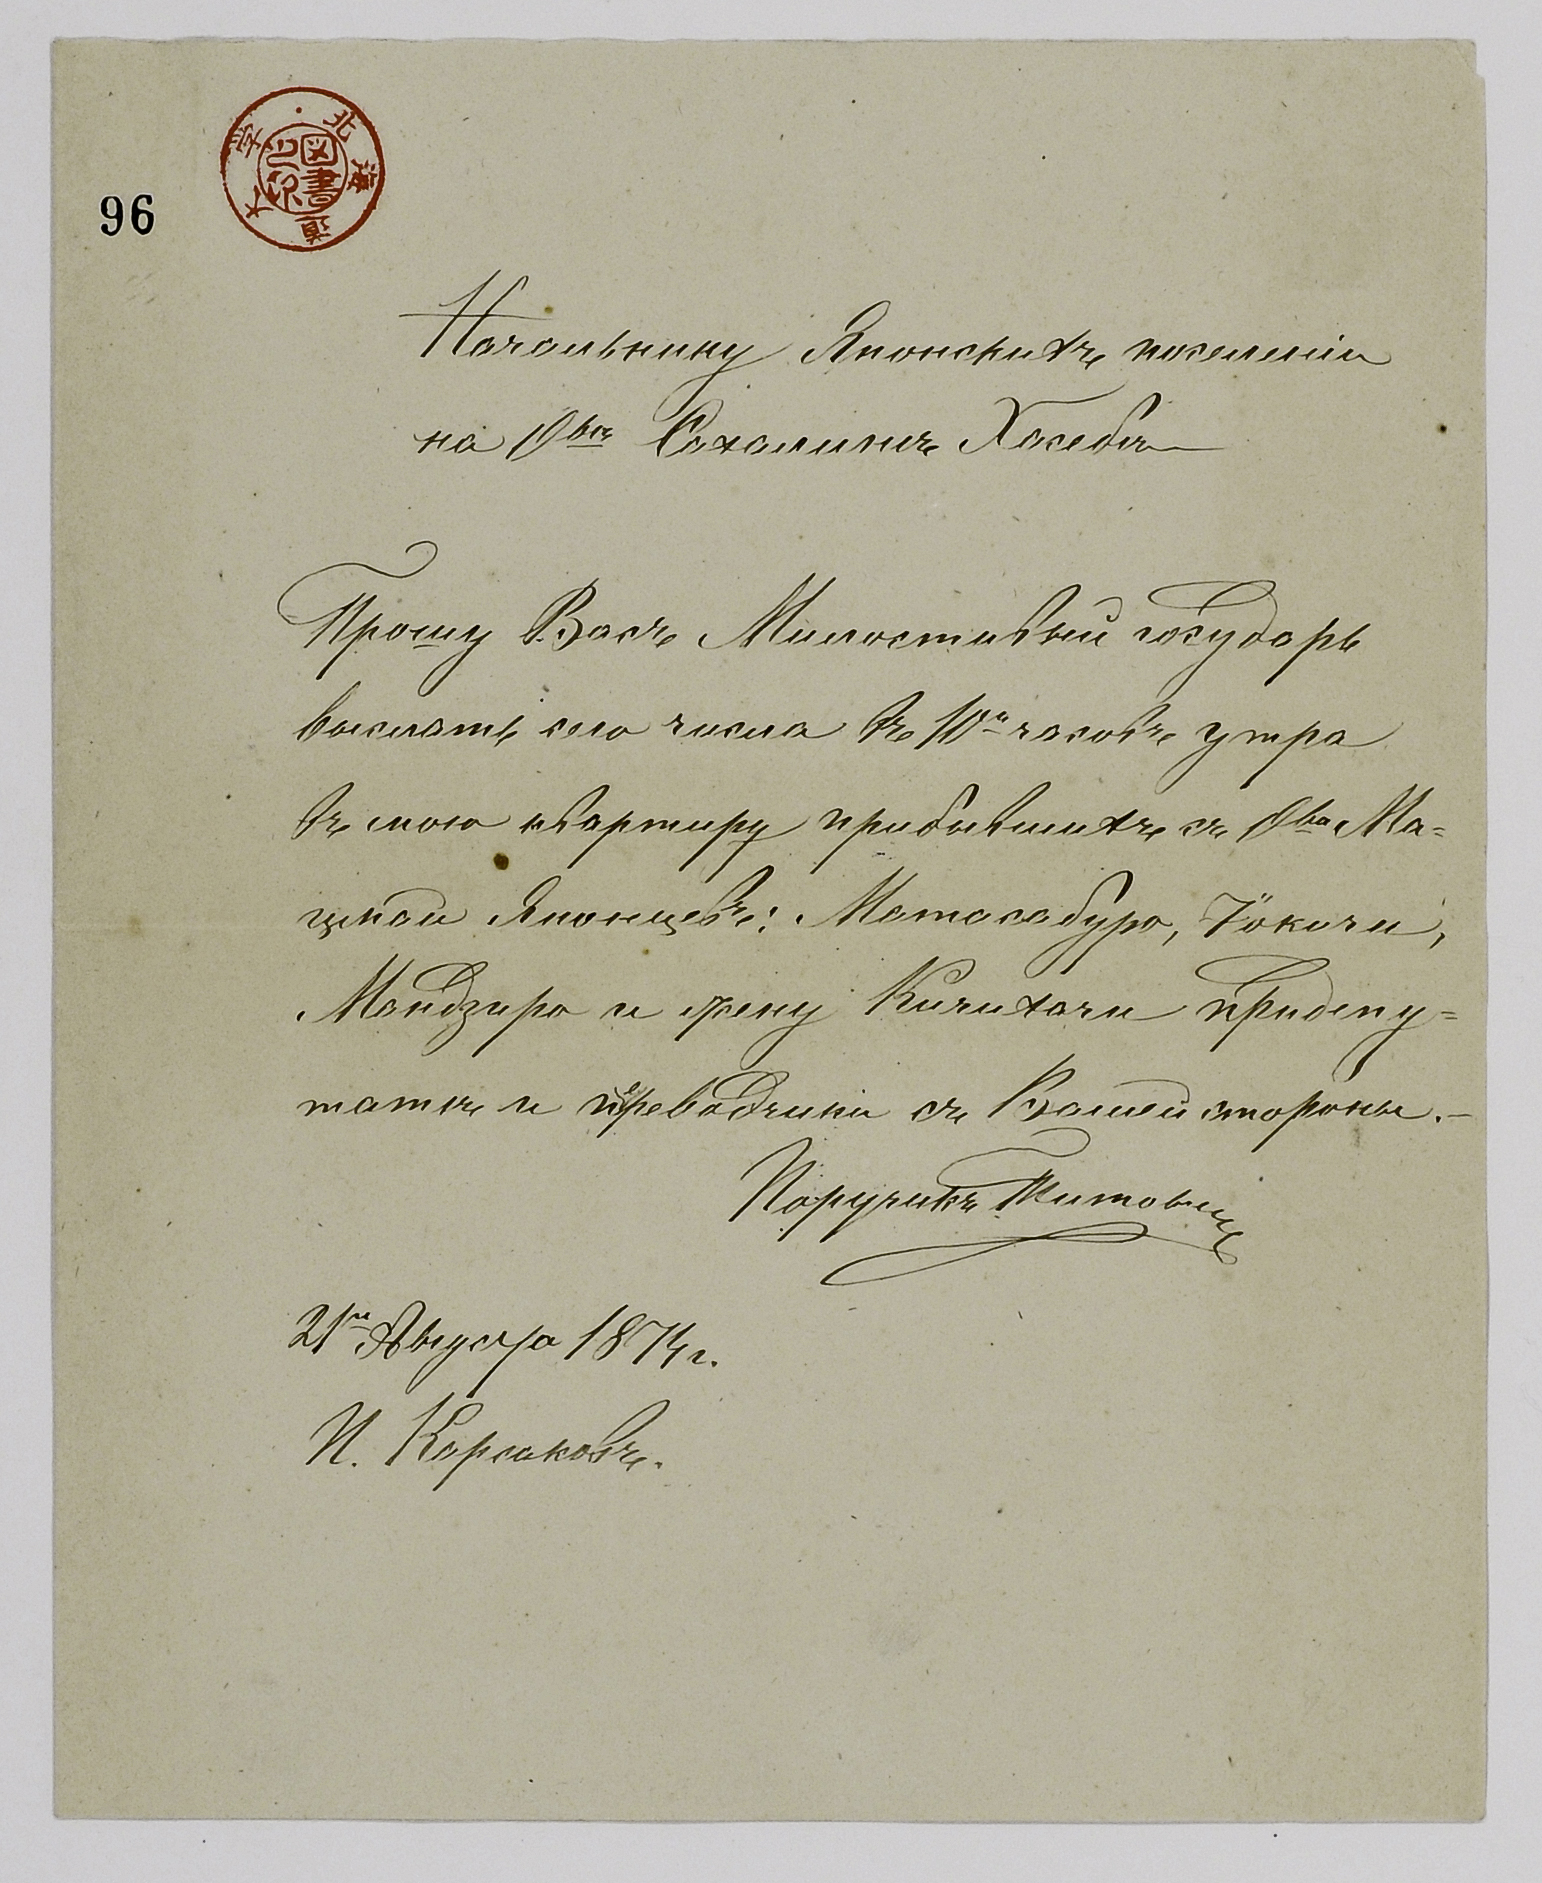 96
北海道大学
図書之印
Начальнику Японскихъ поселеній
на О-вѣ Сахалинѣ Хасебѣ
Прошу Васъ Милостивый государь
выслать сего числа въ 10ть часовъ утра
въ мою квартиру прибывшихъ съ О-ва Ма=
цмай Японцевъ: Матасабуро, Токичи,
Мандзиро и жену Кичихачи при депу=
татѣ и переводчики съ Вашей стороны.-
Поручикъ
21го Августа 1874г.
П. Корсаковъ.